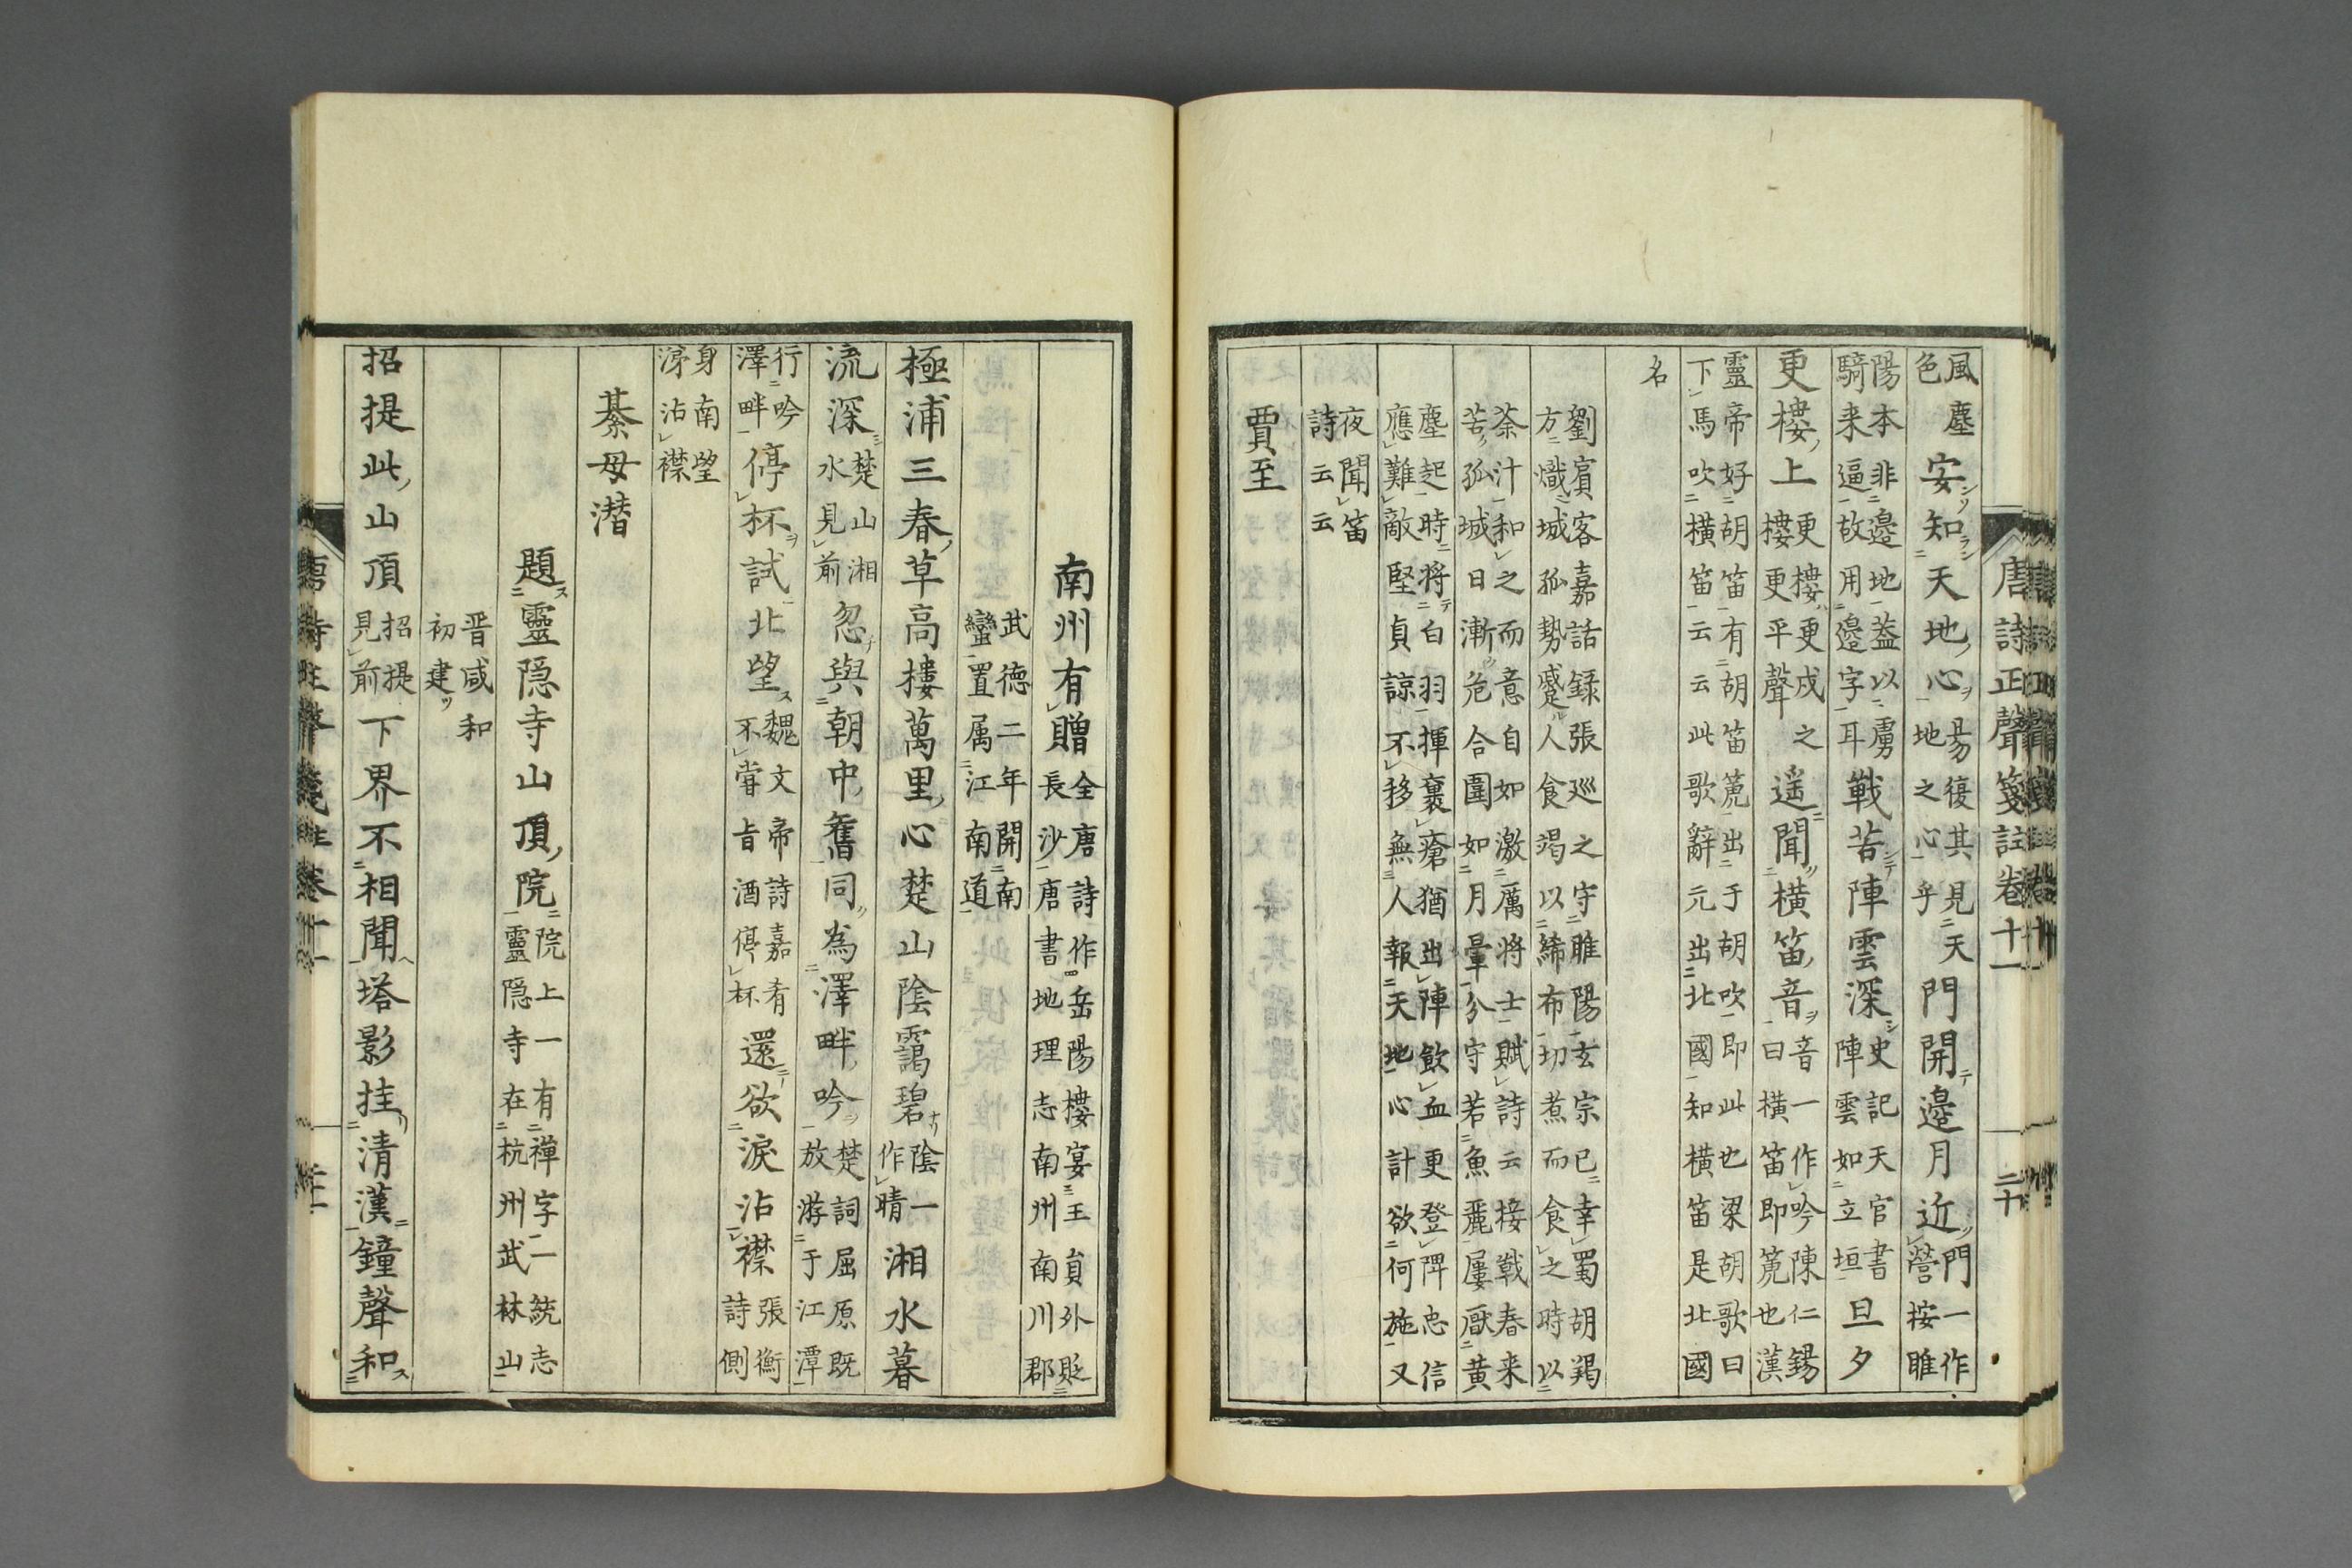 唐詩正聲箋註卷十一 二十
風塵色安知天地心易復其見天地之心乎門開邊月近門一作營按睢
陽本非邊地蓋以虜騎来逼故用邊字耳戰苦陣雲深史記天官書陣雲如立垣旦夕
更樓上更樓更戍之樓更平聲遥聞横笛音音一作吟陳仁錫曰横笛即篪也漢
靈帝好胡笛有胡笛篪出于胡吹即此也梁胡歌曰下馬吹横笛云云此歌辭元出北國知横笛是北國
名
劉賓客嘉話録張巡之守睢陽玄宗已幸蜀胡羯方熾城孤勢蹙人食竭以絺布切煮而食之時以
茶汁和之而意自如激厲将士賦詩云接戰春来苦孤城日漸危合圍如月暈分守若魚麗屢厭黄
塵起時将白羽揮裹瘡猶出陣飲血更登陴忠信應難敵堅貞諒不移無人報天地心計欲何施又
夜聞笛詩云云
賈至
南州有贈全唐詩作岳陽樓宴王員外貶長沙唐書地理志南州南川郡
武德二年開南蠻置属江南道
極浦三春草高樓萬里心楚山陰靄碧陰一作晴湘水暮
流深楚山湘水見前忽與朝中舊同為澤畔吟楚詞屈原既放游于江潭
行吟澤畔停杯試北望魏文帝詩嘉肴不嘗旨酒停杯還欲淚沾襟張衡詩側
身南望涕沾襟
綦母潜
題靈隠寺山頂院院上一有禅字一統志靈隠寺在杭州武林山
晋咸和初建
招提此山頂招提見前下界不相聞塔影挂清漢鐘聲和